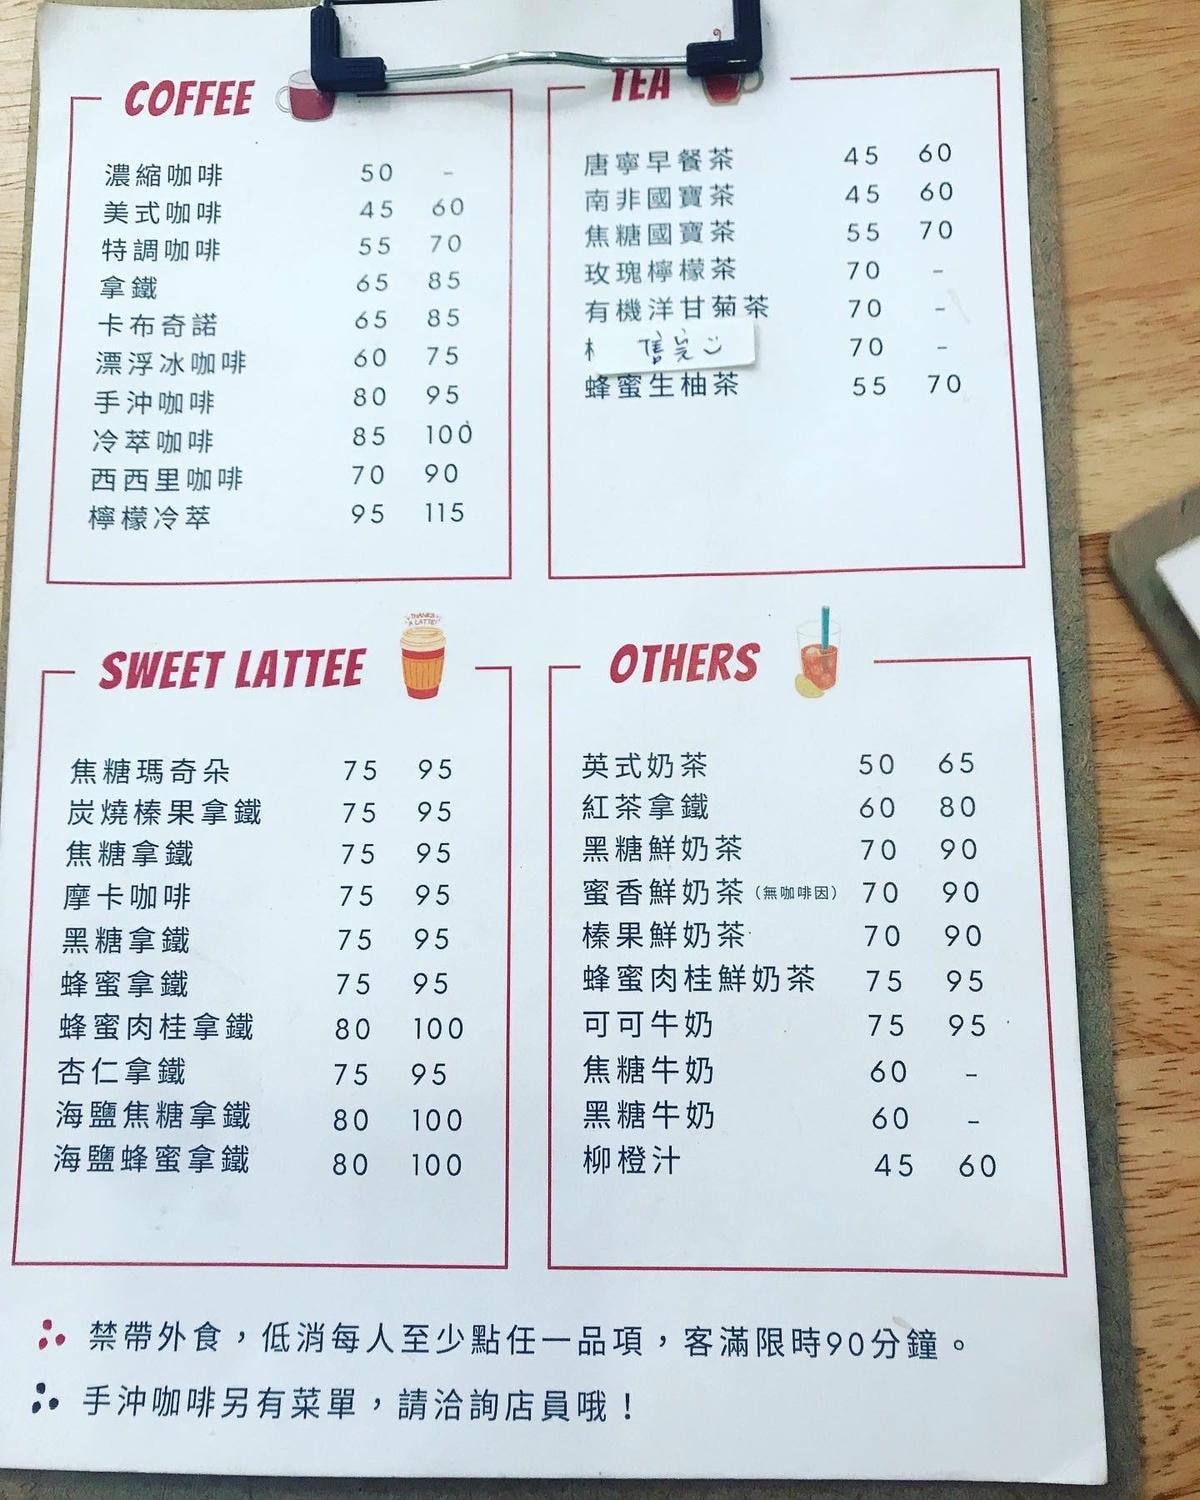 COFFEE
濃縮咖啡 50 -
美式咖啡 45 60
特調咖啡 55 70
拿鐵 65 85
卡布奇諾 65 85
漂浮冰咖啡 60 75
手沖咖啡 80 95
冷萃咖啡 85 100
西西里咖啡 70 90
檸檬冷萃 95 115
TEA
唐寧早餐茶 45 60
南非國寶茶 45 60
焦糖國寶茶 55 70
玫瑰檸檬茶 70 -
有機洋甘菊茶 70 -
售完 70 -
蜂蜜生柚茶 55 70
SWEET LATTEE
THANKS A LATTE!
焦糖瑪奇朵 75 95
炭燒榛果拿鐵 75 95
焦糖拿鐵 75 95
摩卡咖啡 75 95
黑糖拿鐵 75 95
蜂蜜拿鐵 75 95
蜂蜜肉桂拿鐵 80 100
杏仁拿鐵 75 95
海鹽焦糖拿鐵 80 100
海鹽蜂蜜拿鐵 80 100
OTHERS
英式奶茶 50 65
紅茶拿鐵 60 80
黑糖鮮奶茶 70 90
蜜香鮮奶茶(無咖啡因) 70 90
榛果鮮奶茶 70 90
蜂蜜肉桂鮮奶茶 75 95
可可牛奶 75 95
焦糖牛奶 60 -
黑糖牛奶 60 -
柳橙汁 45 60
禁帶外食，低消每人至少點任一品項，客滿限時90分鐘。
手沖咖啡另有菜單，請洽詢店員哦！